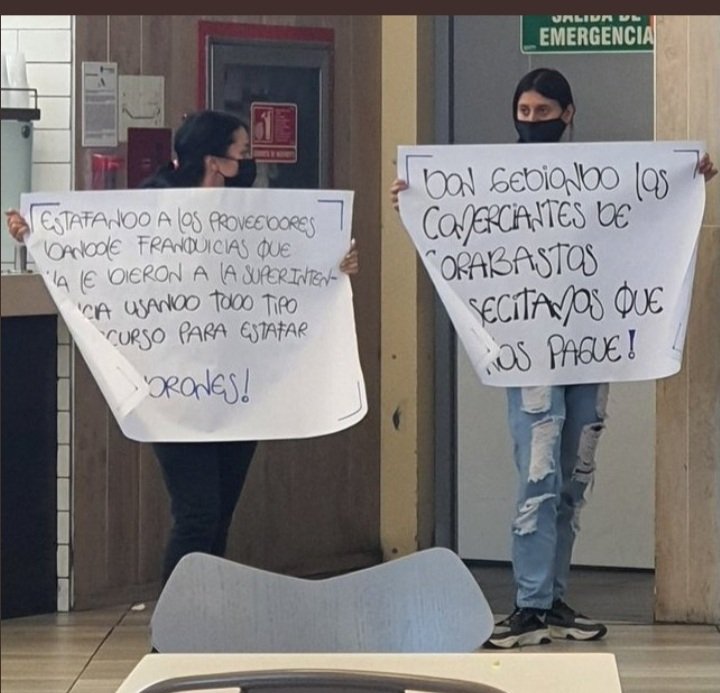 SALIDA DE
EMERGENCIA
ESTAFANDO A LOS PROVEEDORES
DANDOLE FRANQUICIAS QUE
YA LE DIERON A LA SUPERINTEN-
CIA USANDO TODO TIPO
CURSO PARA ESTAFAR
DRONES!
DON GEDIONDO LOS
COMERCIANTES DE
CORABASTOS
SECITAMOS QUE
NOS PAGUE!